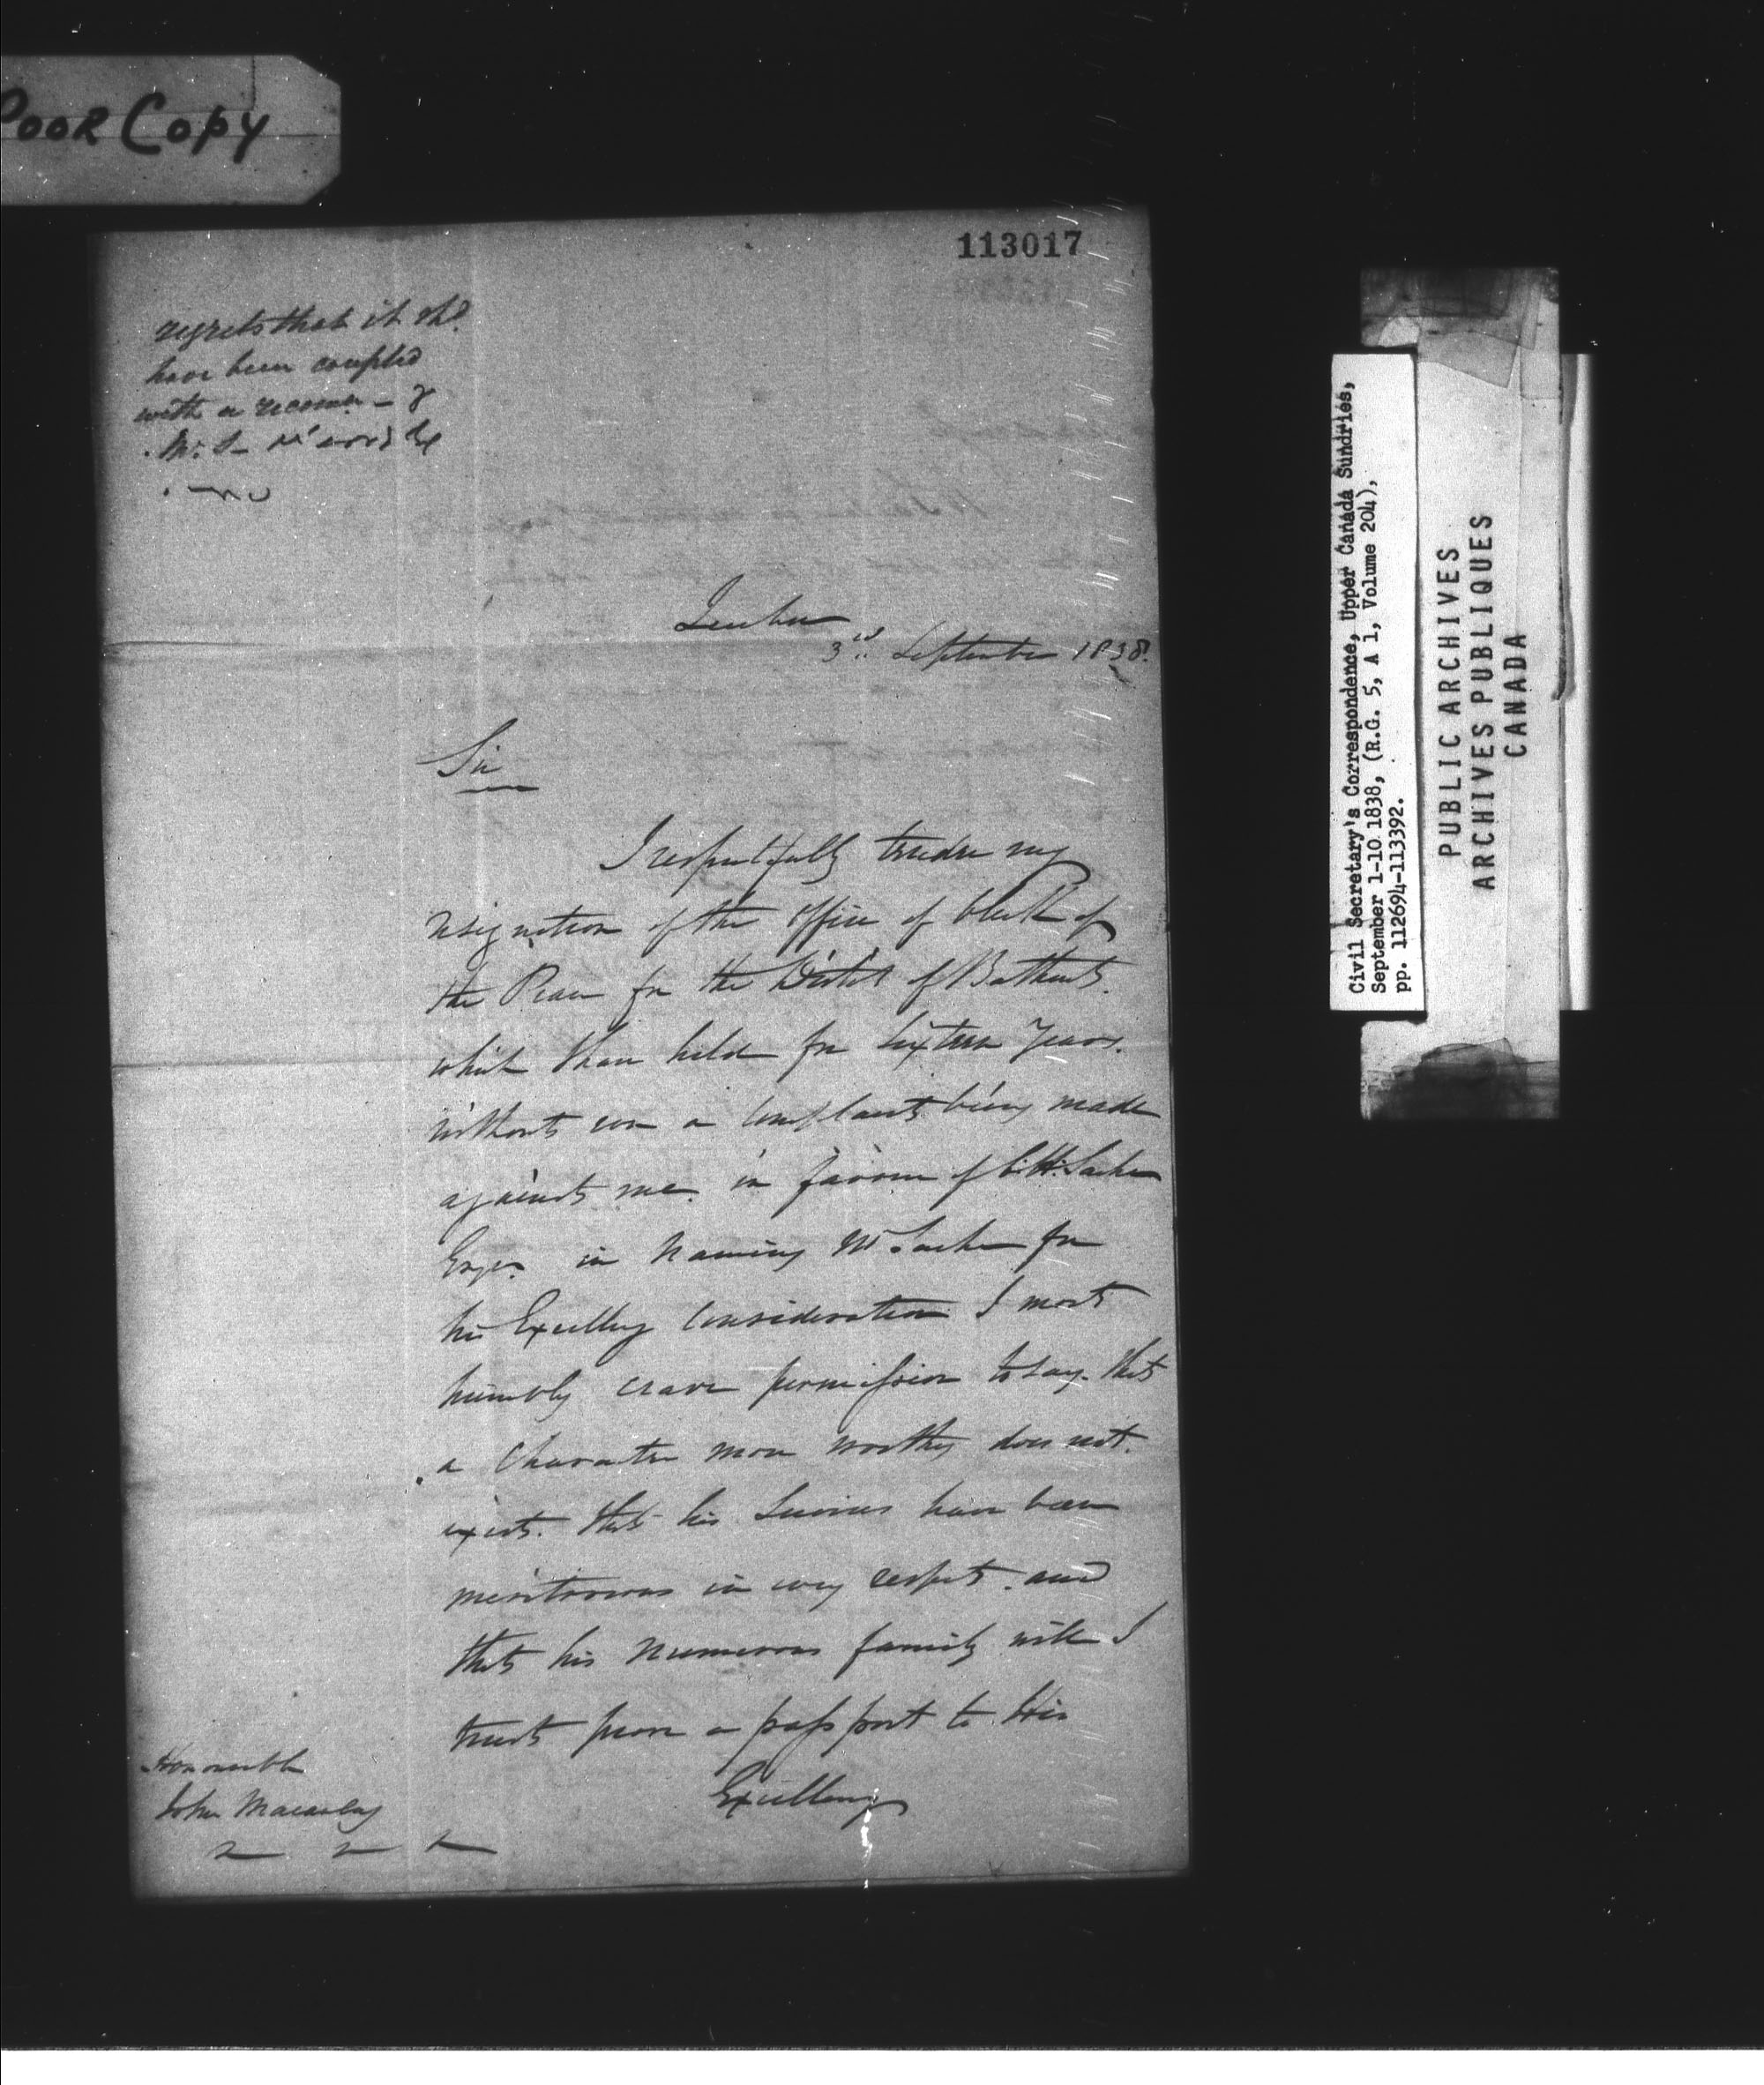 POOR COPY
113017
regrets that it shd
have been coupled
with a recomn - of
Mr. S
3rd September 1838.
Sir
I respectfully tender my
resignation of the office of Clerk of
the Peace for the District of Bathurst.
which I have held for Sixteen Years.
without even a Complaint being made
against me. in favour of C. H. Sache
Esqr. in Naming Mr Sache for
his Excellency Consideration I most
humbly crave permission to say. that
a Character more worthy does not.
exist. that his Services have been
meritorious in every respect. and
that his Numerous family will I
trust prove a passport to His
Excellency
Honourable
John Macaulay
Civil Secretary's Correspondence, Upper Canada Sundries,
September 1-10 1838, (R.G. 5, A 1, Volume 204),
pp. 112694-113392.
PUBLIC ARCHIVES
ARCHIVES PUBLIQUES
CANADA